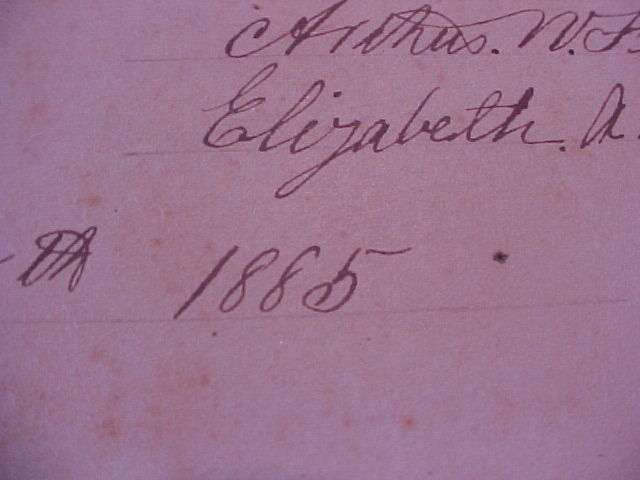 Arthur. W. F
Elizabeth. A.
th 1885